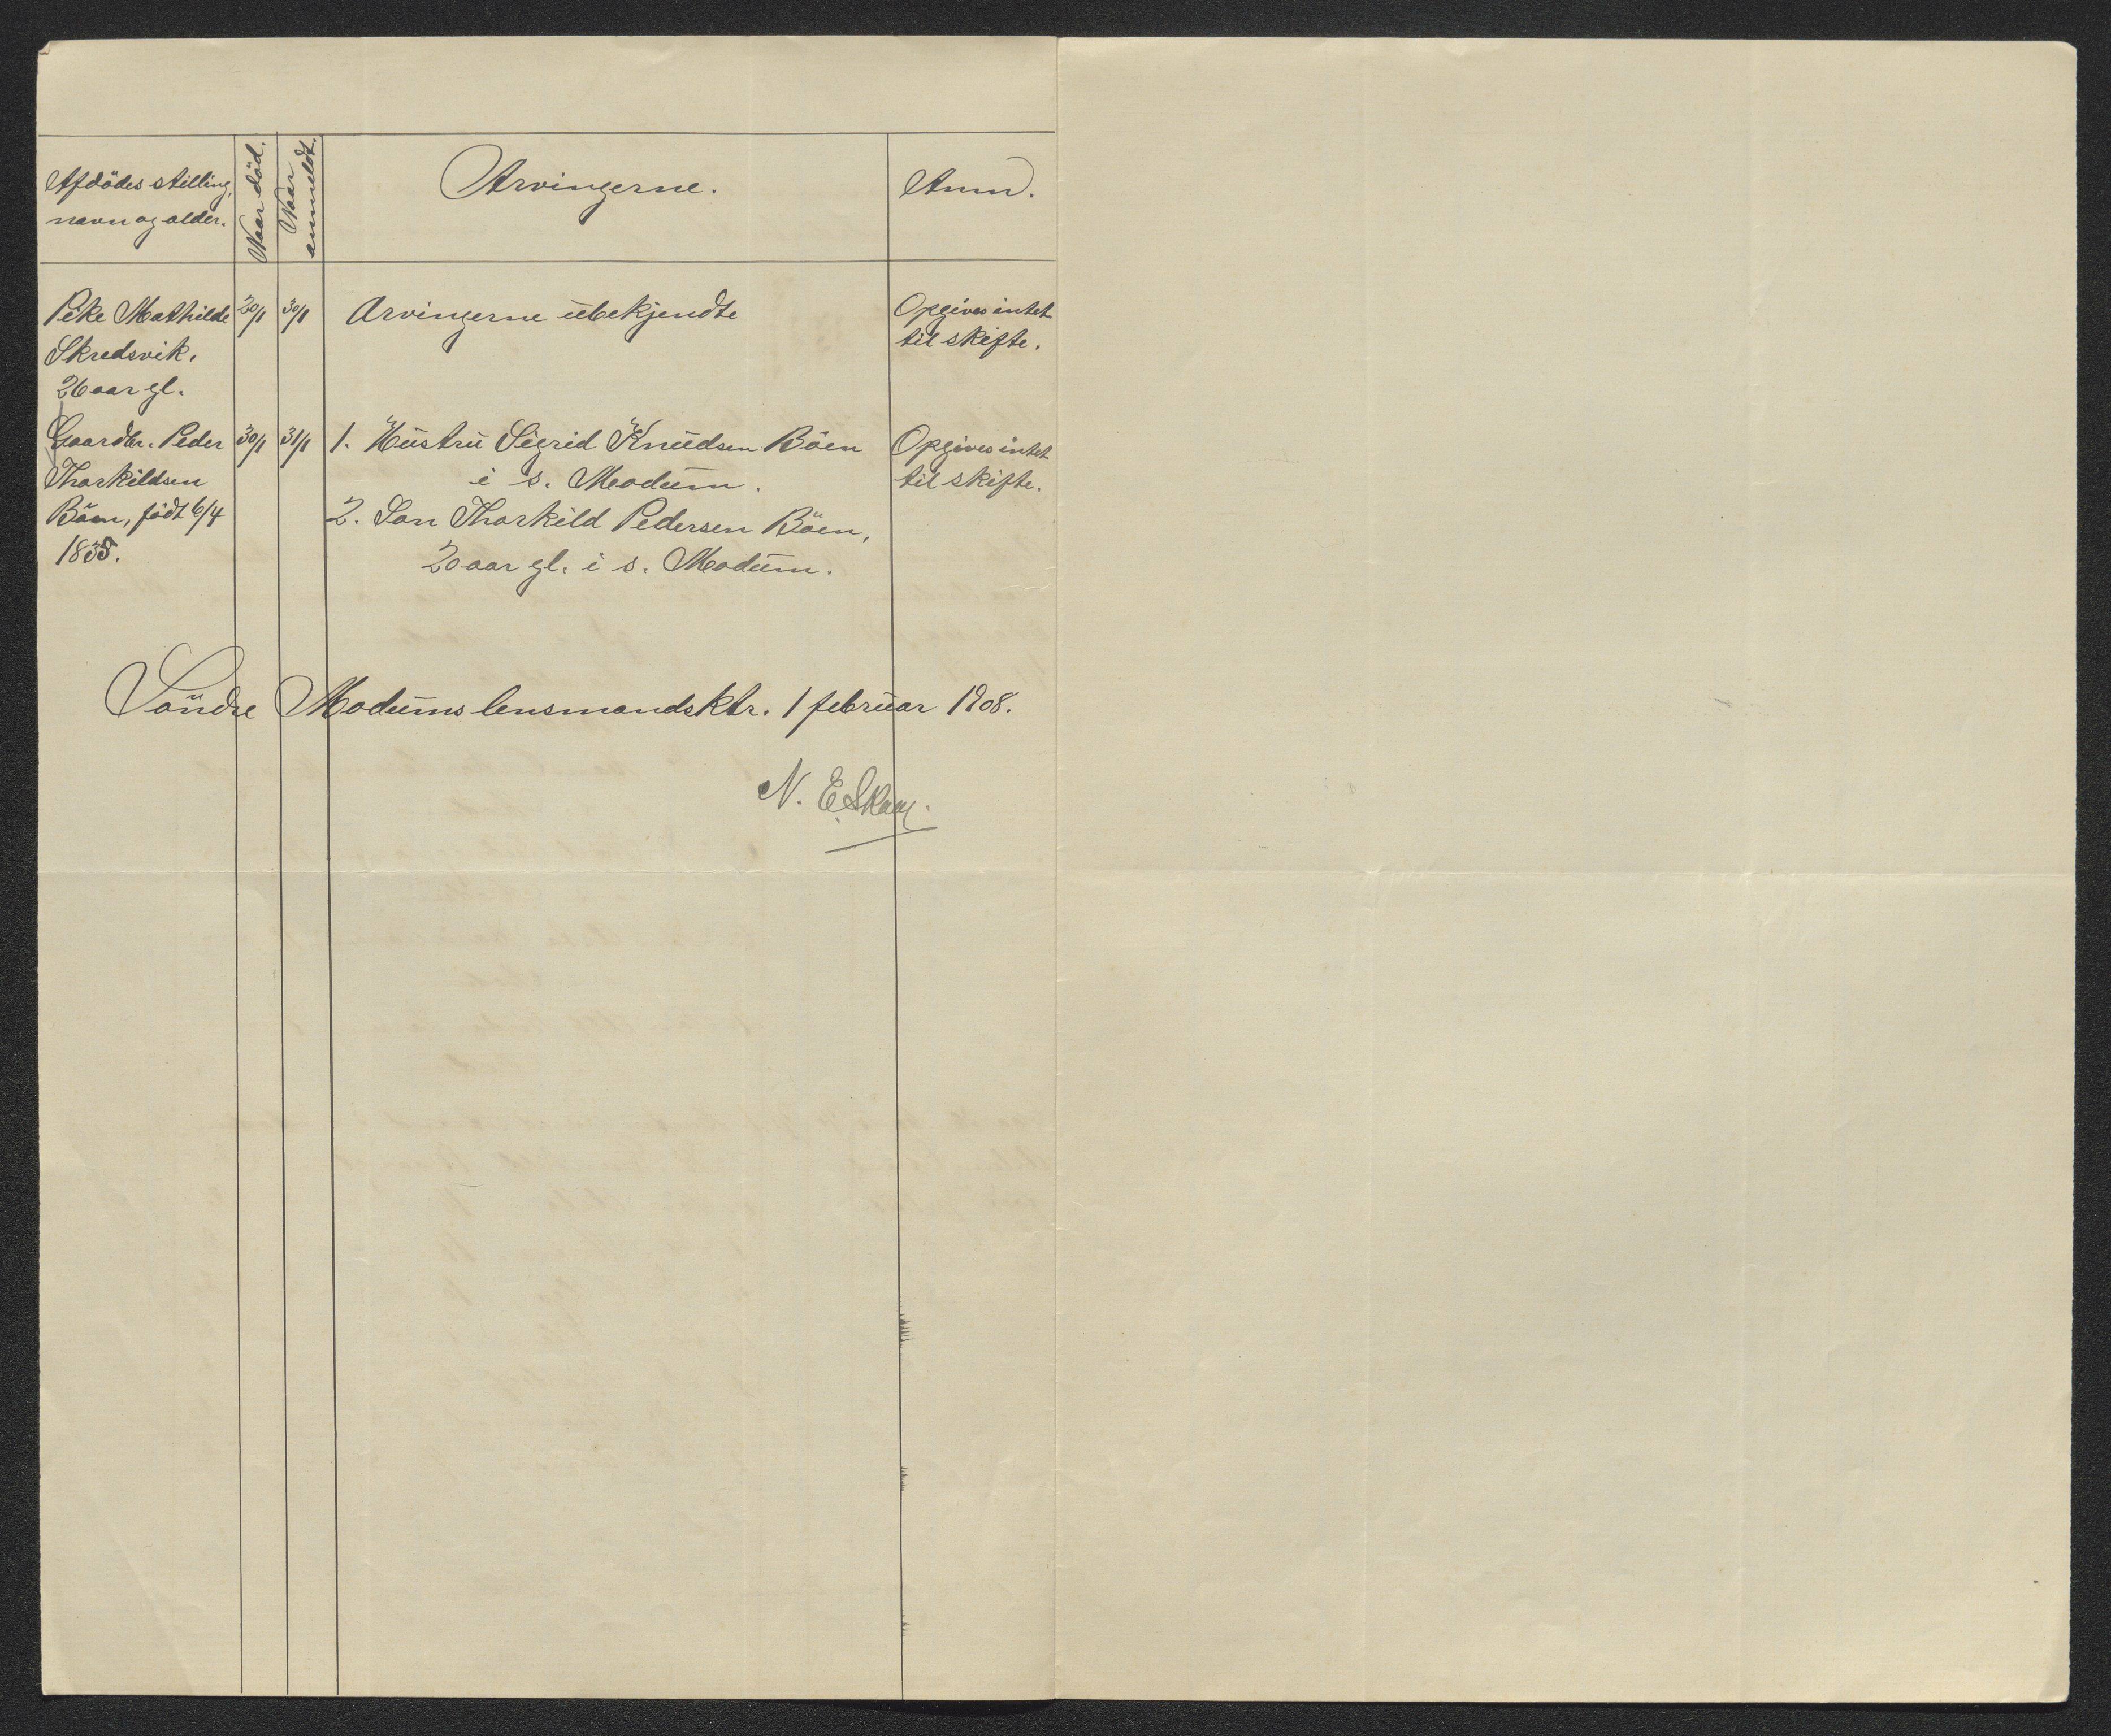 Afdödes stilling,
navn og alder.
Naar död.
Naar
anmeldt.
Arvingerne.
Anm.
Pike Mathilde
Skredsvik,
26 aar gl.
20/1
30/1
Arvingerne ubekjendte
Opgives intet
til skifte.
Gaardbr. Peder
Thorkildsen
Böen, födt 6/4
1835.
30/1
31/1
1. Hustru Sigrid Knudsen Böen
i s. Modum.
2. Sön Thorkild Pedersen Böen,
20 aar gl. i s. Modum.
Opgives intet
til skifte.
Söndre Modums lensmandsktr. 1 februar 1908.
N. E. Skaar.